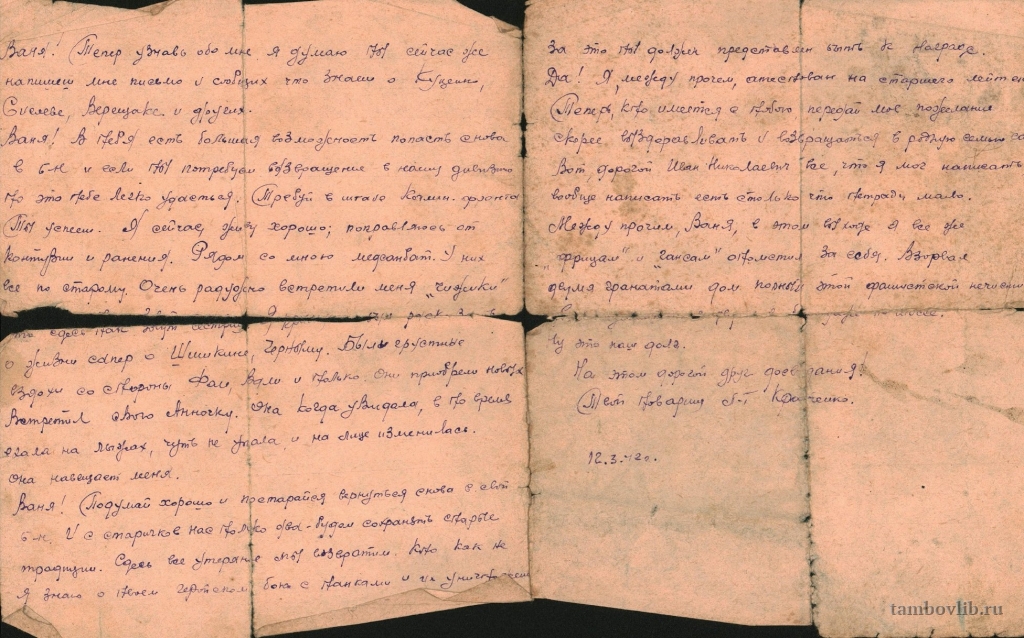 Ваня! Тепер узнавь обо мне я думаю ты сейчас же
напишеш мне письмо и сообщих что знаеш о
Верещаке и других.
Ваня! В тебя есть большая возможность попасть снова
в б-н и если ты потребуеш возвращение в нашу дивизию
то это тебе легко удасться. Требуй в штабе фронта
Ты успееш. Я сейчас живу хорошо; поправляюсь от
контузии и ранения. Рядом со мною медсанбат. У них
все по старому. Очень радужно встретили меня "чижики"
о жизни сапер о Шишкине, Черныму. Были грустные
вздохи со стороны Фаи, Вали и только. Они приобрели новых
Встретил свою Анночку. Она когда увидала, в то время
ехала на лыжах, чуть не упала и на лице изменилась.
Она навещает меня.
Ваня! Подумай хорошо и постарайся вернуться снова в свой
б-н. И с старичков нас только два - будем сохранять старые
традиции. Здесь все утеряное мы возвратим. Кто как не
я знаю о твоем геройском бою с танками и их
За это ты должен представлен быть к награде.
Да! Я, между прочем, атестован на старшего
Теперь, кто имеется с тобого передай мое пожелания
скорее выздоравливать и возвращаться в родную семью
Вот дорогой Иван Николаевич все, что я мог написать
вообще написать есть столько что тетради мало.
Между прочим, Ваня, в этом выходе я все же
"фрицам" и "гансам" отомстил за себя. Взорвал
двумя гранатами дом полный этой фашистской нечисти
Ну это наш долг.
На этом дорогой друг досвидания!
Твой товарищ
12.3.42г.
tambovlib.ru